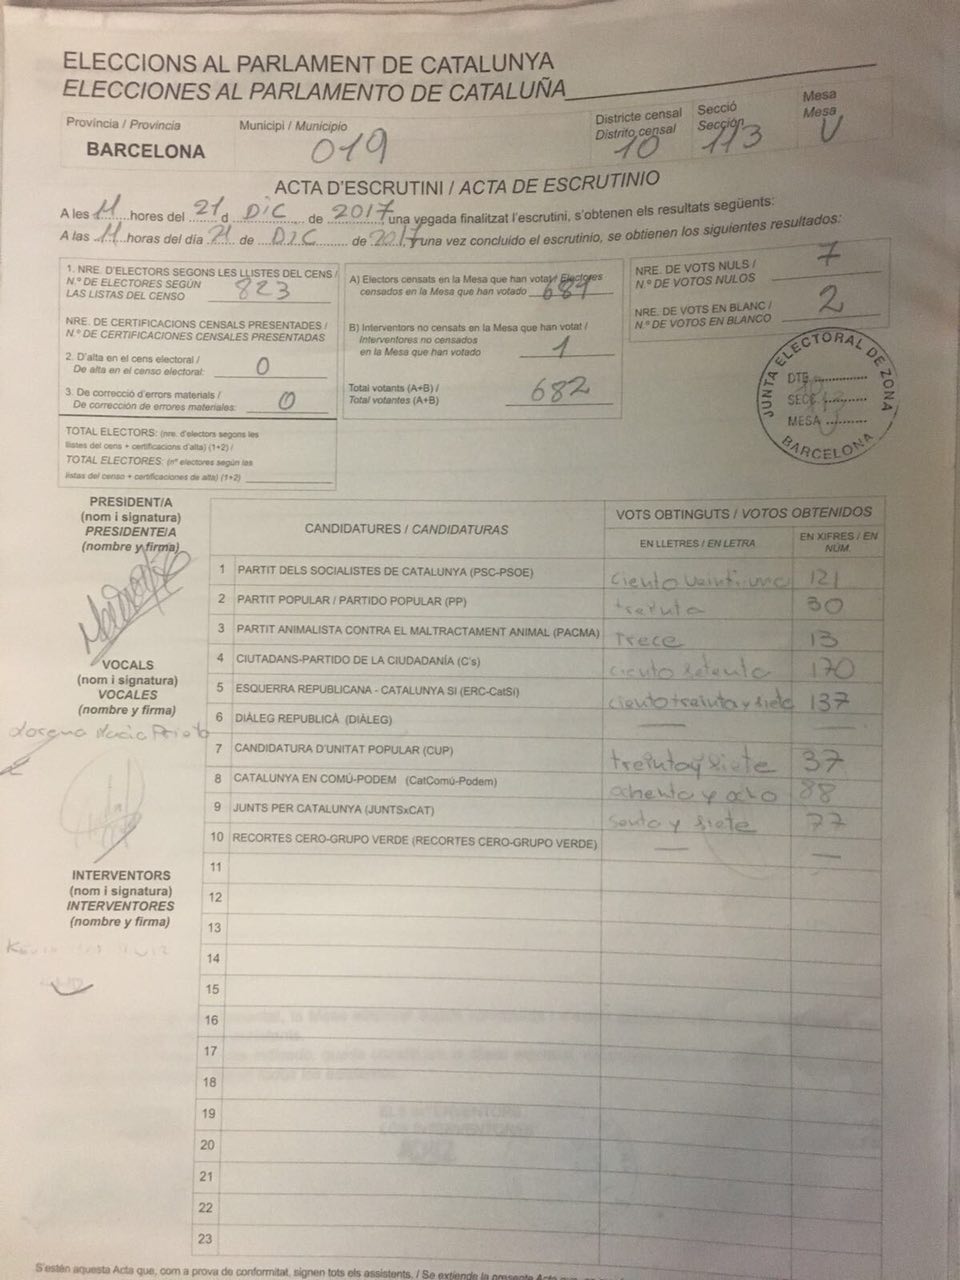 ELECCIONS AL PARLAMENT DE CATALUNYA
ELECCIONES AL PARLAMENTO DE CATALUÑA
Provincia / Provincia
BARCELONA
Municipi / Municipio
019
Districte censal
Distrito censal
10
Secció
Sección
113
Mesa
Mesa
U
ACTA D'ESCRUTINI / ACTA DE ESCRUTINIO
A les 11 hores del 21 d DIC de 2017 una vegada finalitzat l'escrutini, s'obtenen els resultats següents:
A las 11 horas del día 21 de DIC de 2017 una vez concluido el escrutinio, se obtienen los siguientes resultados:
1. NRE. D'ELECTORS SEGONS LES LLISTES DEL CENS /
N.º DE ELECTORES SEGÚN
LAS LISTAS DEL CENSO 823
NRE. DE CERTIFICACIONS CENSALS PRESENTADES /
N.º DE CERTIFICACIONES CENSALES PRESENTADAS
2. D'alta en el cens electoral /
De alta en el censo electoral: 0
3. De correcció d'errors materials /
De corrección de errores materiales: 0
TOTAL ELECTORS: (nre. d'electors segons les
llistes del cens + certificacions d'alta) (1+2) /
TOTAL ELECTORES: (nº electores según las
listas del censo + certificaciones de alta) (1+2)
A) Electors censats en la Mesa que han votat / Electores
censados en la Mesa que han votado 681
B) Interventors no censats en la Mesa que han votat /
Interventores no censados
en la Mesa que han votado 1
Total votants (A+B) /
Total votantes (A+B) 682
NRE. DE VOTS NULS /
N.º DE VOTOS NULOS 7
NRE. DE VOTS EN BLANC /
N.º DE VOTOS EN BLANCO 2
JUNTA ELECTORAL DE ZONA
DTE.
SECC.
MESA
BARCELONA
PRESIDENT/A
(nom i signatura)
PRESIDENTE/A
(nombre y firma)
VOCALS
(nom i signatura)
VOCALES
(nombre y firma)
Lorena Macia Prieto
INTERVENTORS
(nom i signatura)
INTERVENTORES
(nombre y firma)
CANDIDATURES / CANDIDATURAS
VOTS OBTINGUTS / VOTOS OBTENIDOS
EN LLETRES / EN LETRA
EN XIFRES / EN NÚM.
1 PARTIT DELS SOCIALISTES DE CATALUNYA (PSC-PSOE) ciento veintiuno 121
2 PARTIT POPULAR / PARTIDO POPULAR (PP) treinta 30
3 PARTIT ANIMALISTA CONTRA EL MALTRACTAMENT ANIMAL (PACMA) trece 13
4 CIUTADANS-PARTIDO DE LA CIUDADANÍA (C's) ciento setenta 170
5 ESQUERRA REPUBLICANA - CATALUNYA SI (ERC-CatSí) ciento treinta y siete 137
6 DIÀLEG REPUBLICÀ (DIÀLEG) — —
7 CANDIDATURA D'UNITAT POPULAR (CUP) treinta y siete 37
8 CATALUNYA EN COMÚ-PODEM (CatComú-Podem) ochenta y ocho 88
9 JUNTS PER CATALUNYA (JUNTSxCAT) y siete 77
10 RECORTES CERO-GRUPO VERDE (RECORTES CERO-GRUPO VERDE) — —
11
12
13
14
15
16
17
18
19
20
21
22
23
S'estén aquesta Acta que, com a prova de conformitat, signen tots els assistents. / Se extiende la presente Acta que,